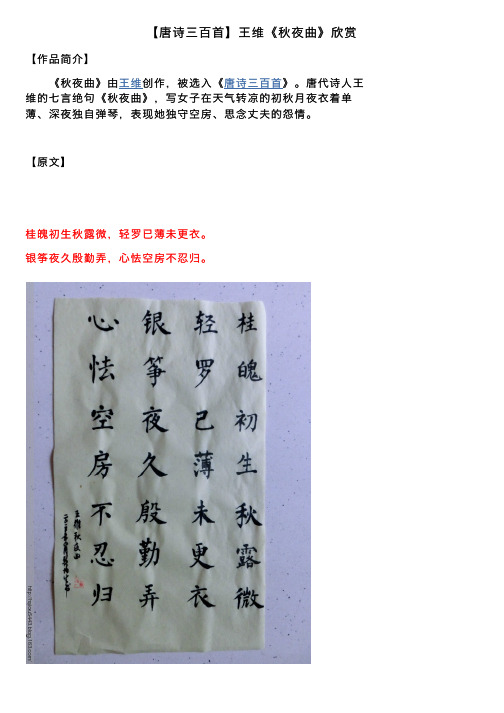 【唐诗三百首】王维《秋夜曲》欣赏
【作品简介】
《秋夜曲》由王维创作，被选入《唐诗三百首》。唐代诗人王
维的七言绝句《秋夜曲》，写女子在天气转凉的初秋月夜衣着单
薄、深夜独自弹琴，表现她独守空房、思念丈夫的怨情。
【原文】
桂魄初生秋露微，轻罗已薄未更衣。
银筝夜久殷勤弄，心怯空房不忍归。
桂魄初生秋露微
轻罗已薄未更衣
银筝夜久殷勤弄
心怯空房不忍归
王维秋夜曲